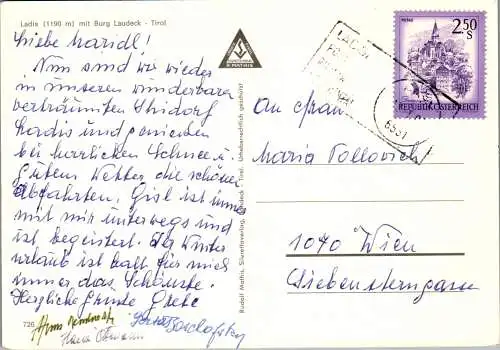 Ladis (1190 m) mit Burg Laudeck - Tirol
Liebe Maridl!
Nun sind wir wieder
in unseren wunderbaren
verträumten Skidorf
Ladis und genießen
bei herrlichen Schnee u.
Gutem Wetter die schönen
Abfahrten. Gisl ist immer
mit mir unterwegs und
ist begeistert. Der Winter
urlaub ist halt für mich
immer das Schönste.
Herzliche Grüße Grete
726
R. MATHIS
Rudolf Mathis, Silvrettaverlag, Landeck - Tirol. Urheberrechtlich geschützt
LADIS
6531
2.50
S
REPUBLIK ÖSTERREICH
An Frau
Maria Pollovich
1070 Wien
Siebensterngasse